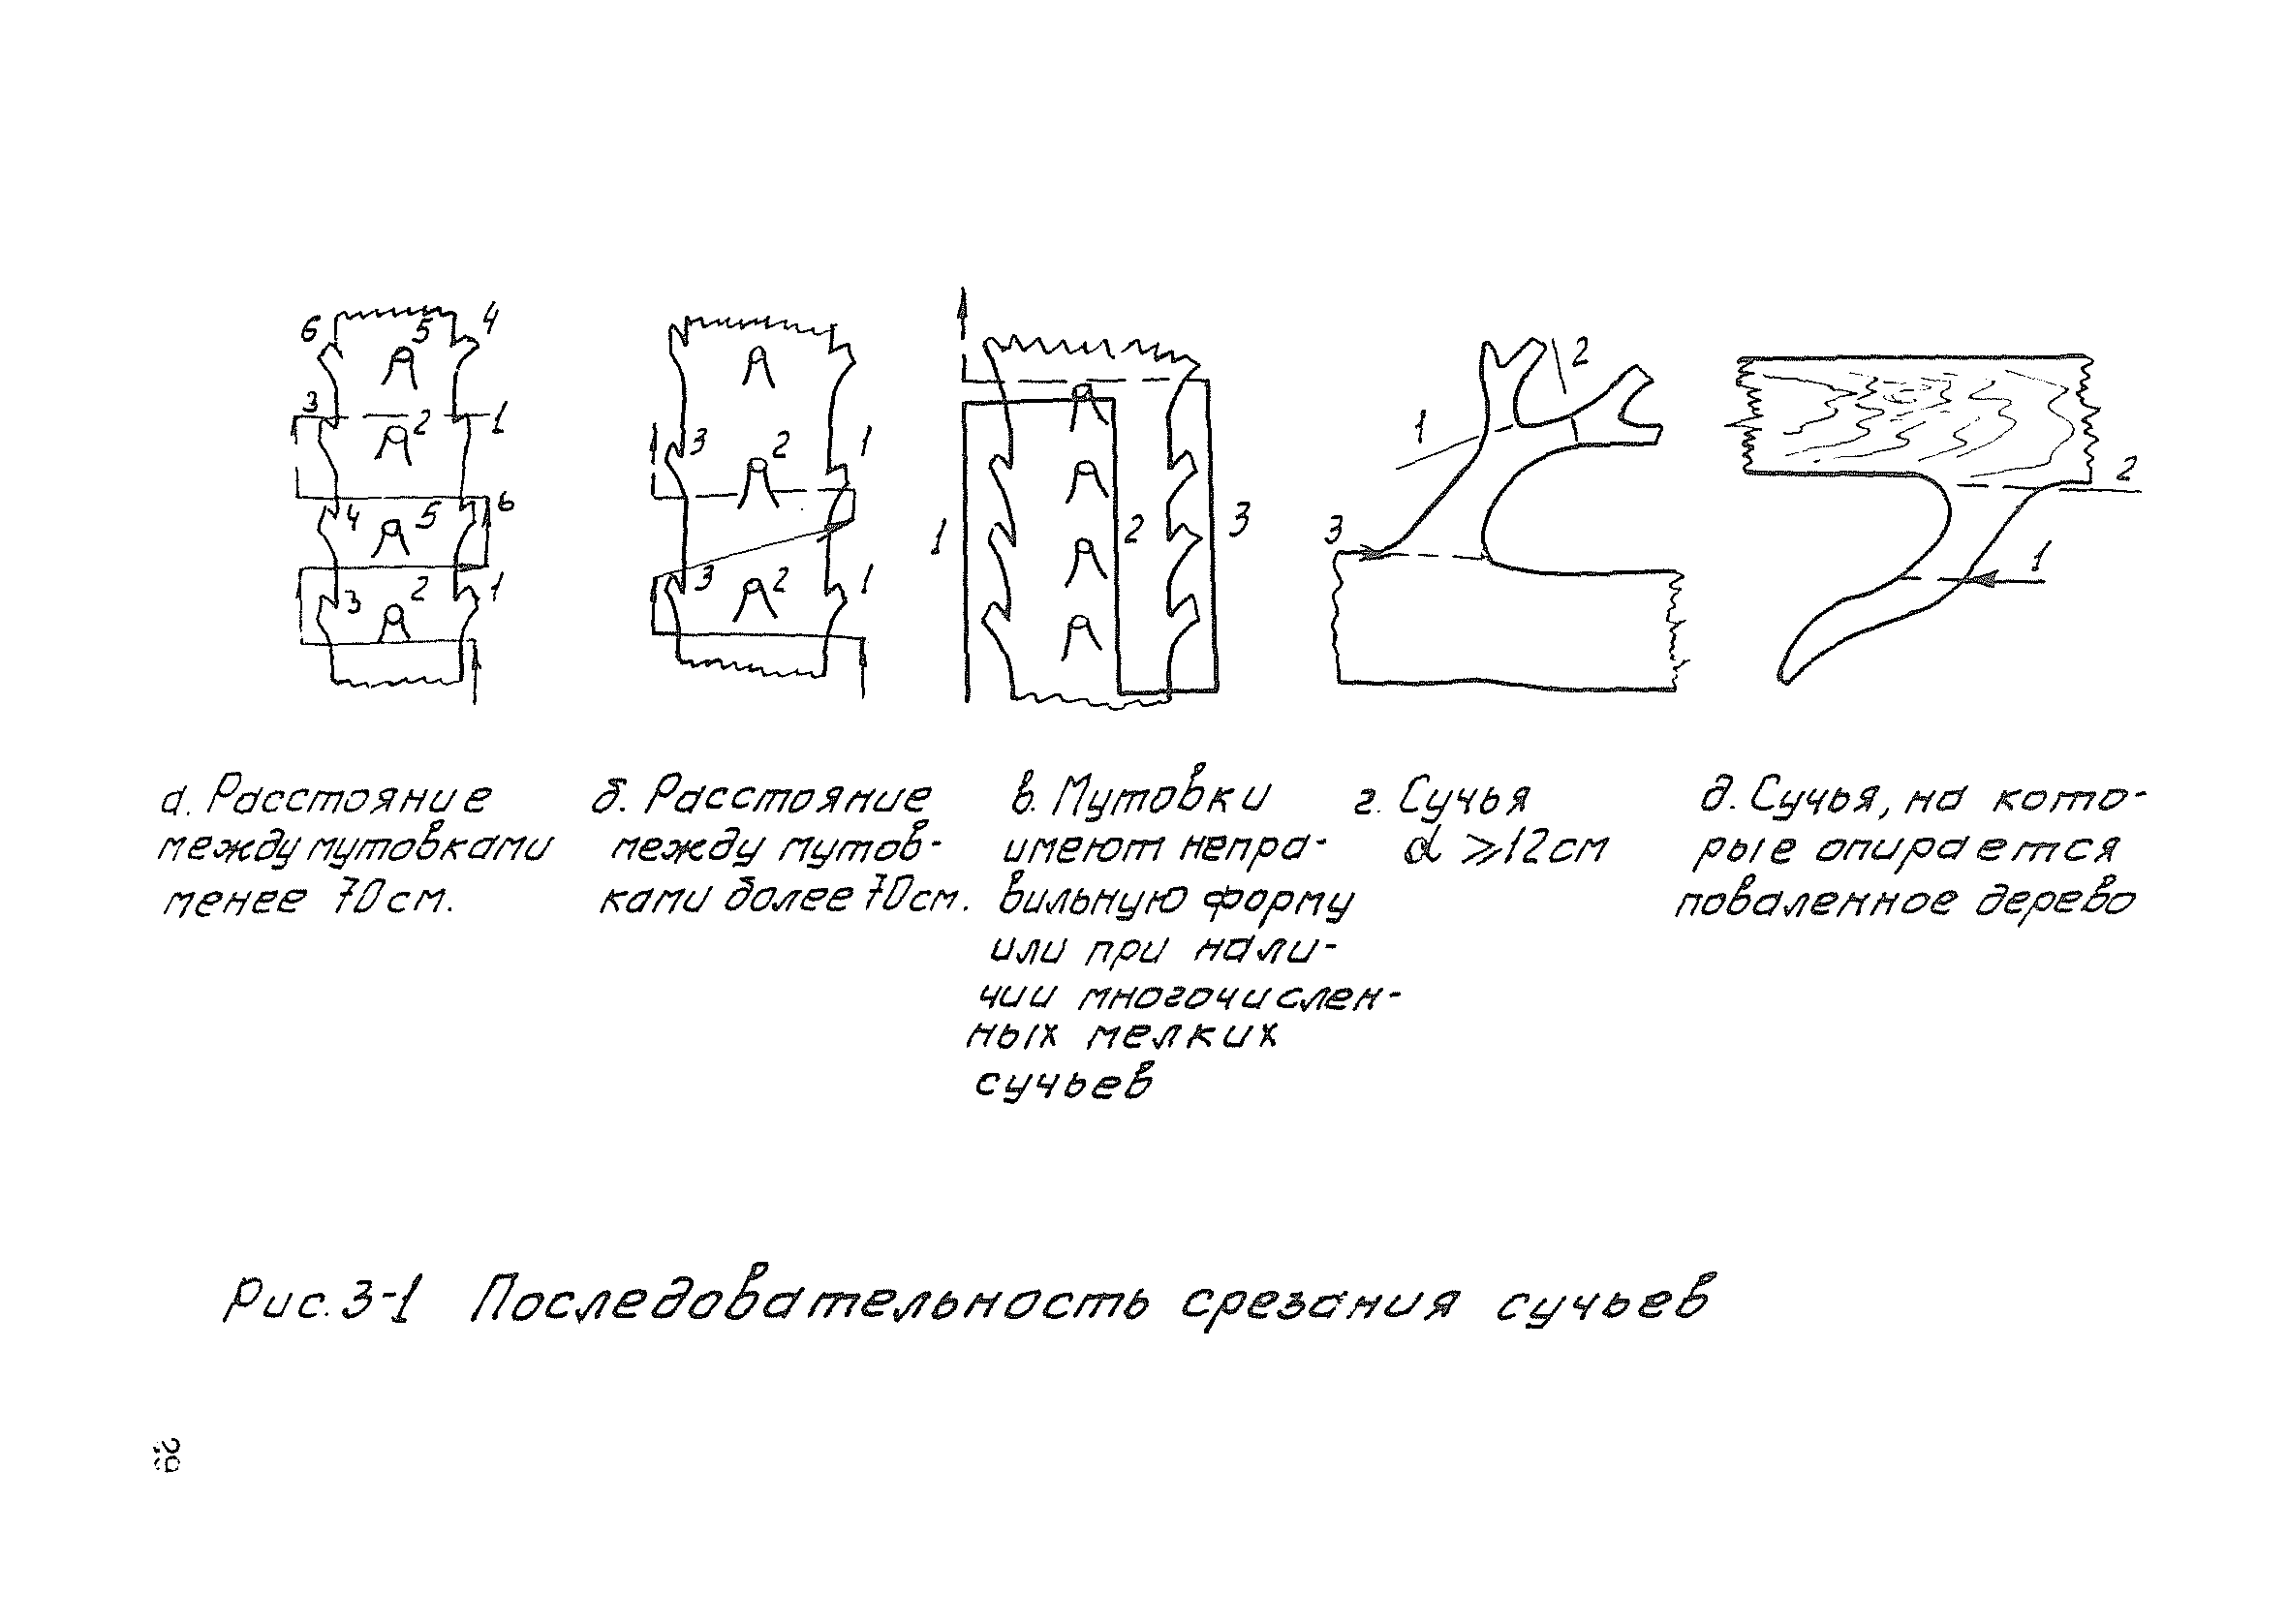 6 5 4
3 2 1
4 5 6
3 2 1
3 2 1
3 2 1
1 2 3
1 2
3
2
1
а. Расстояние
между мутовками
менее 70 см.
б. Расстояние
между мутов-
ками более 70 см.
в. Мутовки
имеют непра-
вильную форму
или при нали-
чии многочислен-
ных мелких
сучьев
г. Сучья
d ⩾ 12 см
д. Сучья, на кото-
рые опирается
поваленное дерево
Рис. 3-1 Последовательность срезания сучьев